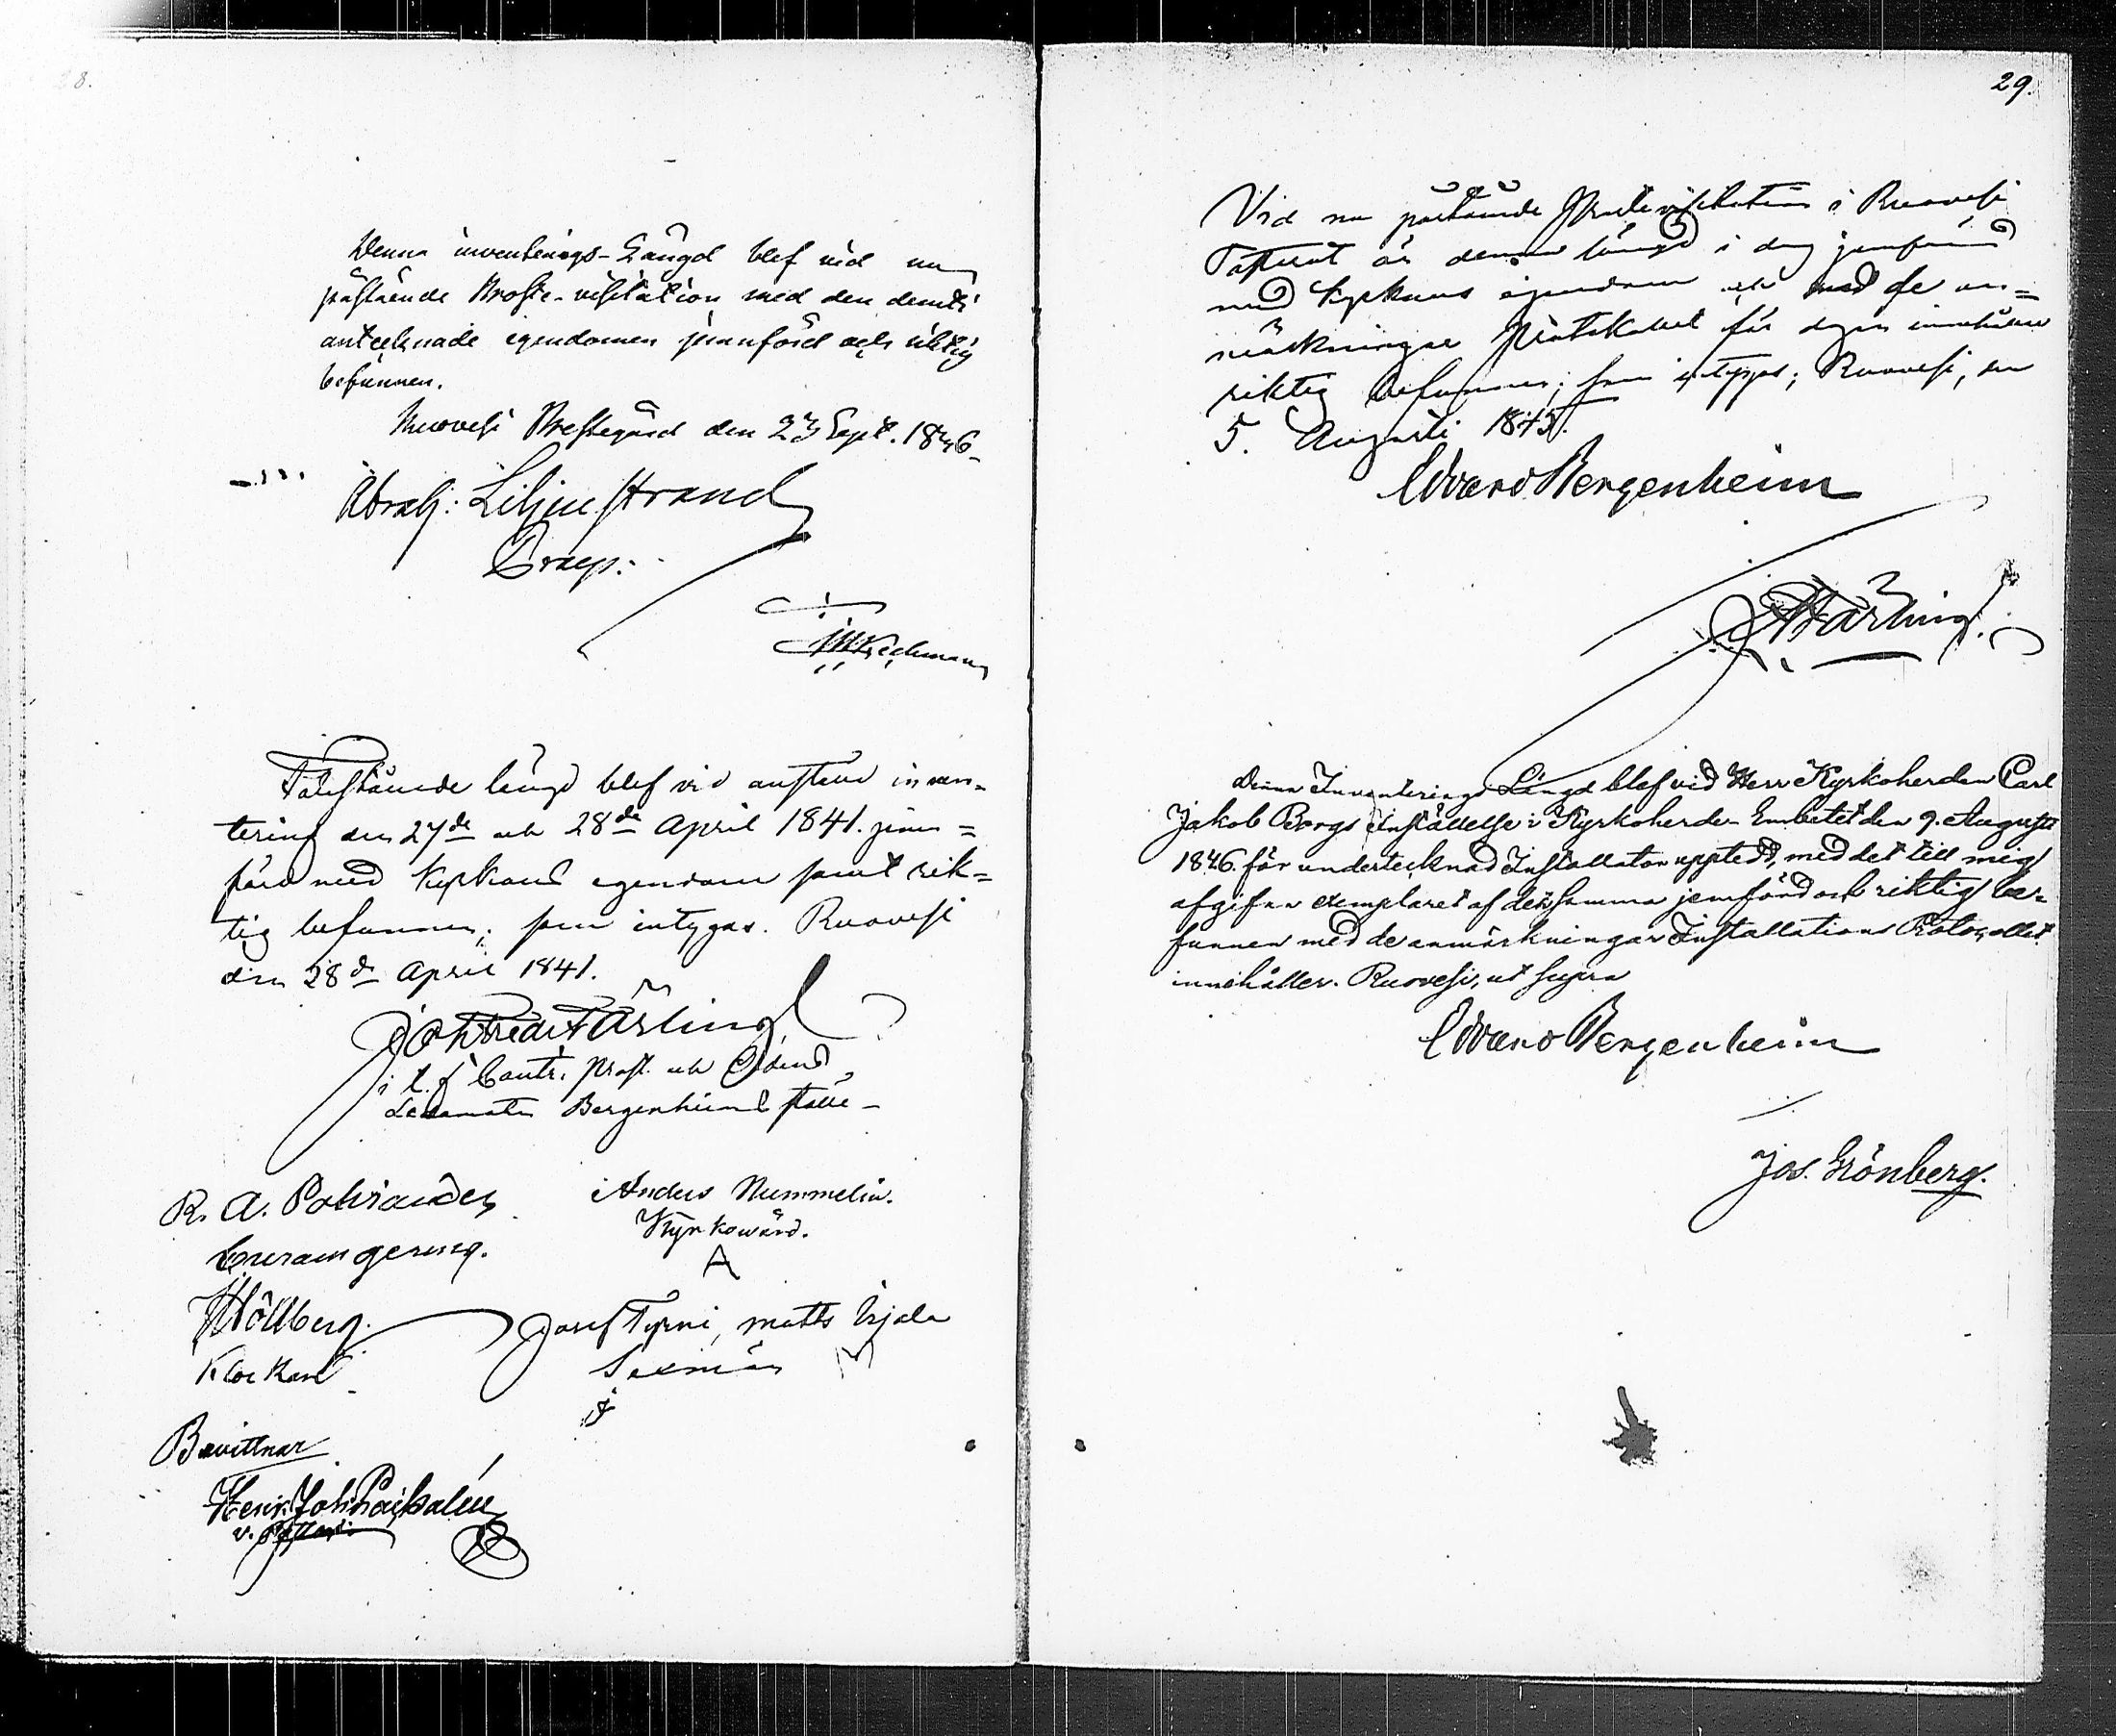 28.
Denna inventerings-Längd blef vid nu
påstående Prosts-visitation med den deruti
antecknade egendomen jemnförd och riktig
befunnen.
Ruovesi Prestegård den 23 Sept. 1836.
Abrah: Liljenstrand
Praep:
Förestående längd blef vid anstäld inven-
tering den 27de och 28de April 1841. jem=
förd med Kyrkans egendom samt rik=
tig befunnen; som intygas. Ruovesi
den 28de April 1841.
Joh Fredr Färling
i t. f Contr. Prost. och
Bergenheims ställe
R. A. Polviander
Anders Nummelin.
Kyrkowärd.
A
Höllberg.
Josef Tyrni, Matts
Klockare
Sexmän
Bevittnar
Henr. Joh:
29.
Vid nu påstående Prostevisitation i Ruovesi
Pastorat är denna längd i dag jemförd
med Kyrkans egendom och med de an=
märkningar Protokollet för dagen innehåller
riktig befunnen; som intygas; Ruovesi, den
5. Augusti 1843.
Edvard Bergenheim
Färling.
Denna Inventerings Längd blef vid Herr Kyrkoherden Carl
Jakob Borgs Inställelse i Kyrkoherde-Embetet den 9. Augusti
1846. för undertecknad Installator uppтedd, med det till mig
afgifna exemplaret af densamma jemförd och riktig be-
funnen med de anmärkningar Installations Protocollet
innehåller. Ruovesi, ut supra
Edvard Bergenheim
Jos. Grönberg.